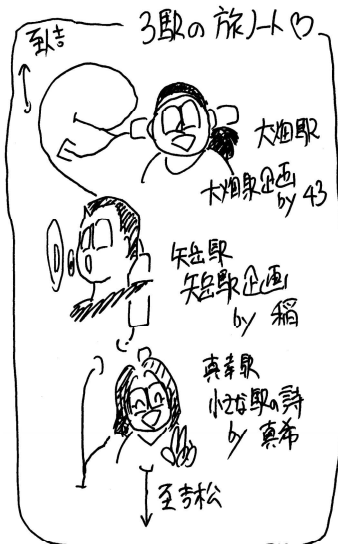 3駅の旅ノート♡
至人吉
大畑駅
大畑駅企画
by 43
矢岳駅
矢岳駅企画
by 稲
真幸駅
小さな駅の詩
by 真希
至吉松